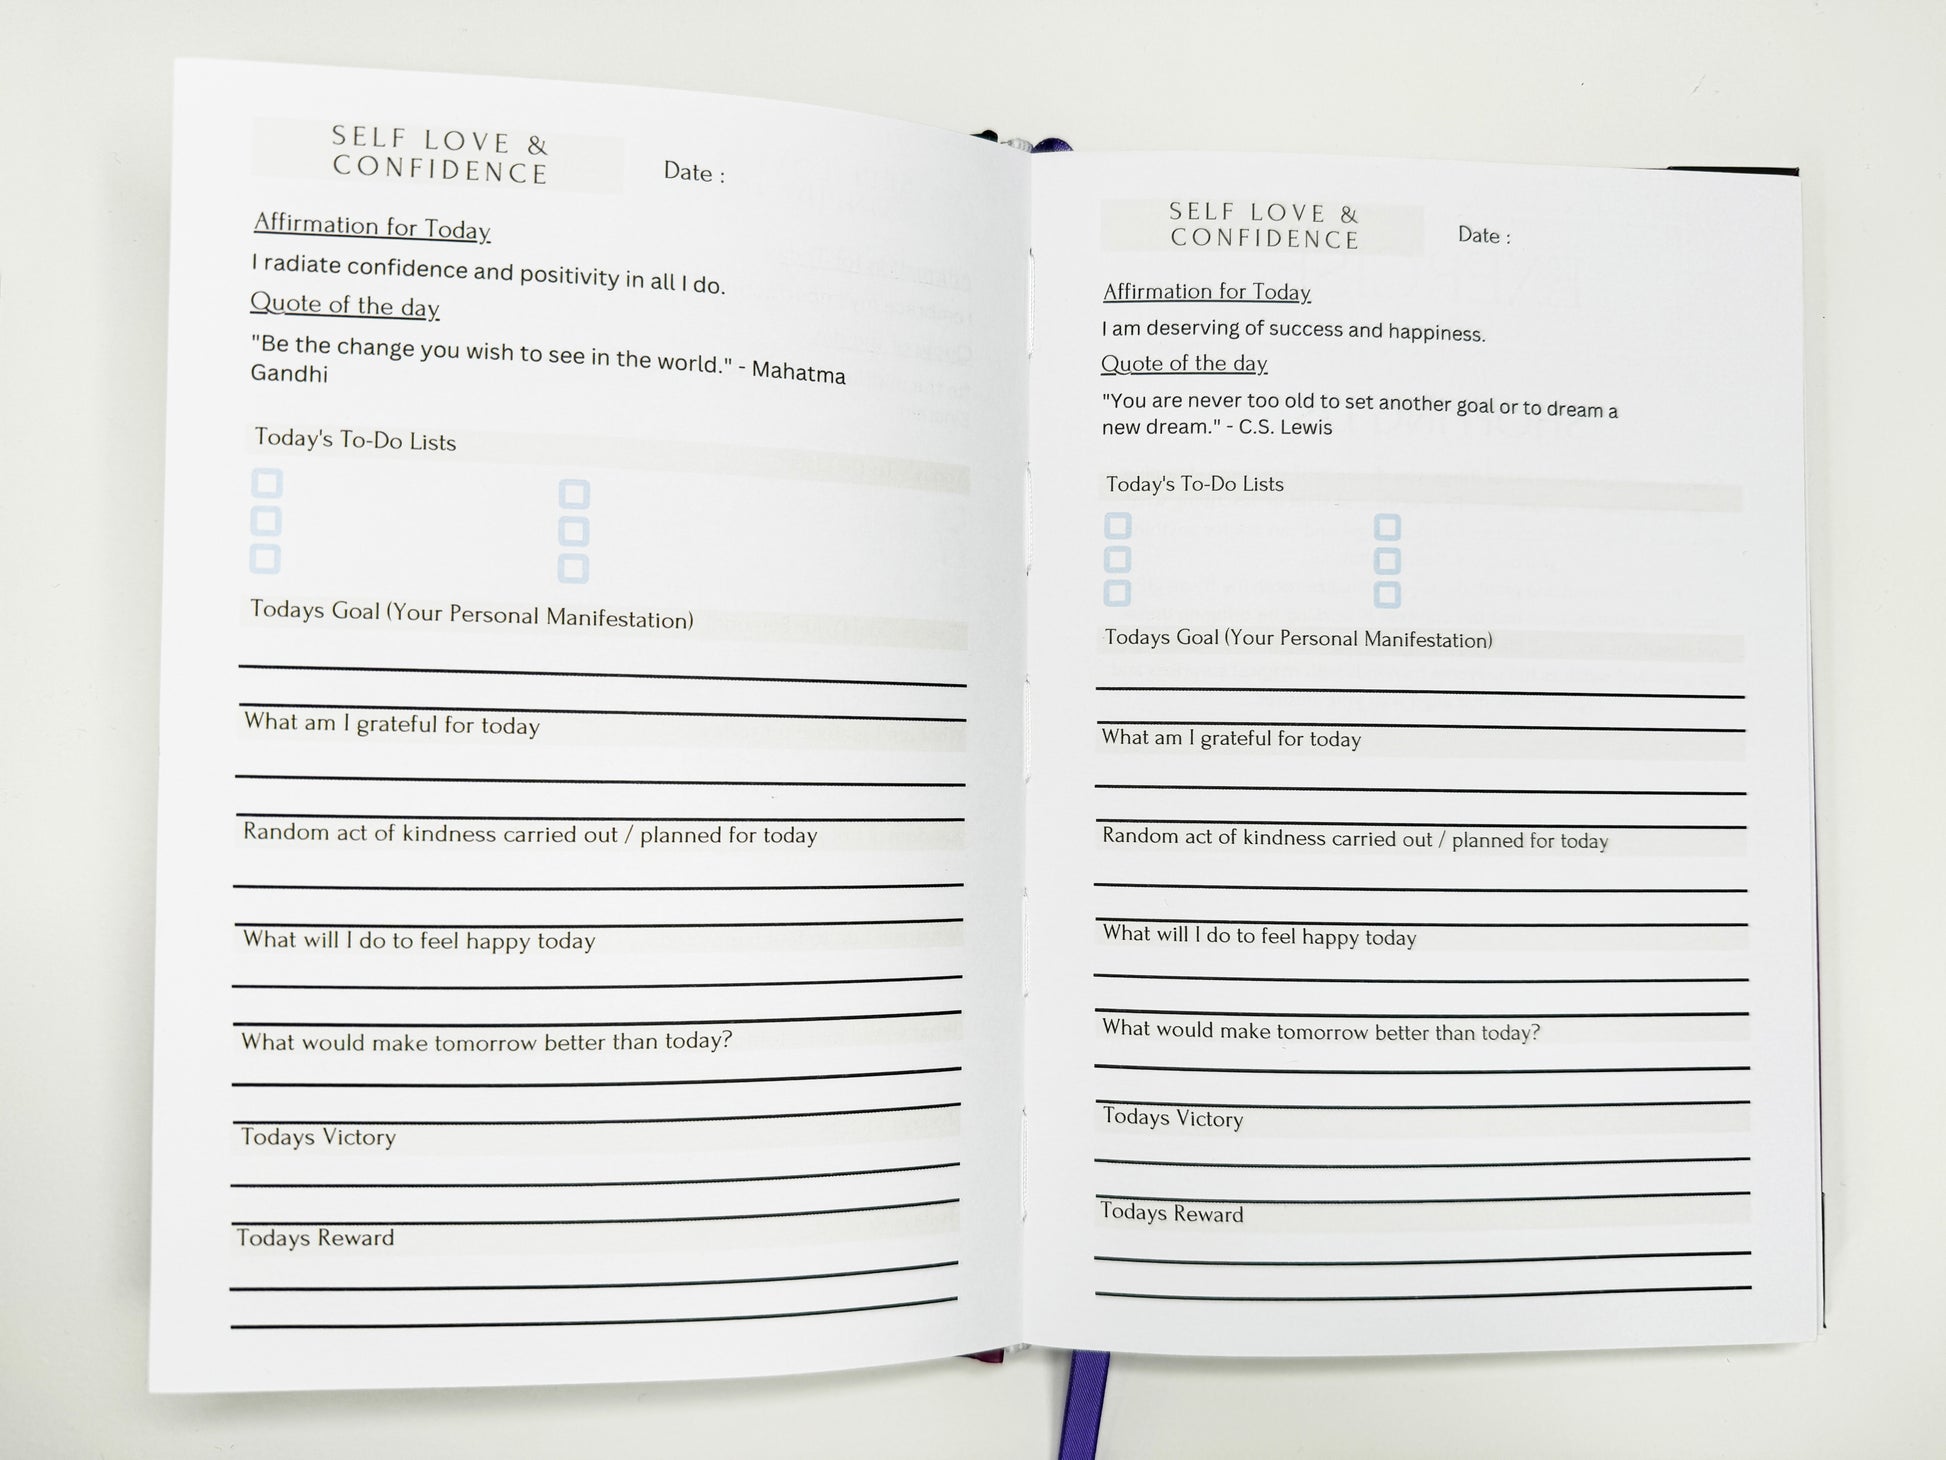 SELF LOVE &
CONFIDENCE
Date :
Affirmation for Today
I radiate confidence and positivity in all I do.
Quote of the day
"Be the change you wish to see in the world." - Mahatma
Gandhi
Today's To-Do Lists
Todays Goal (Your Personal Manifestation)
What am I grateful for today
Random act of kindness carried out / planned for today
What will I do to feel happy today
What would make tomorrow better than today?
Todays Victory
Todays Reward
SELF LOVE &
CONFIDENCE
Date :
Affirmation for Today
I am deserving of success and happiness.
Quote of the day
"You are never too old to set another goal or to dream a
new dream." - C.S. Lewis
Today's To-Do Lists
Todays Goal (Your Personal Manifestation)
What am I grateful for today
Random act of kindness carried out / planned for today
What will I do to feel happy today
What would make tomorrow better than today?
Todays Victory
Todays Reward